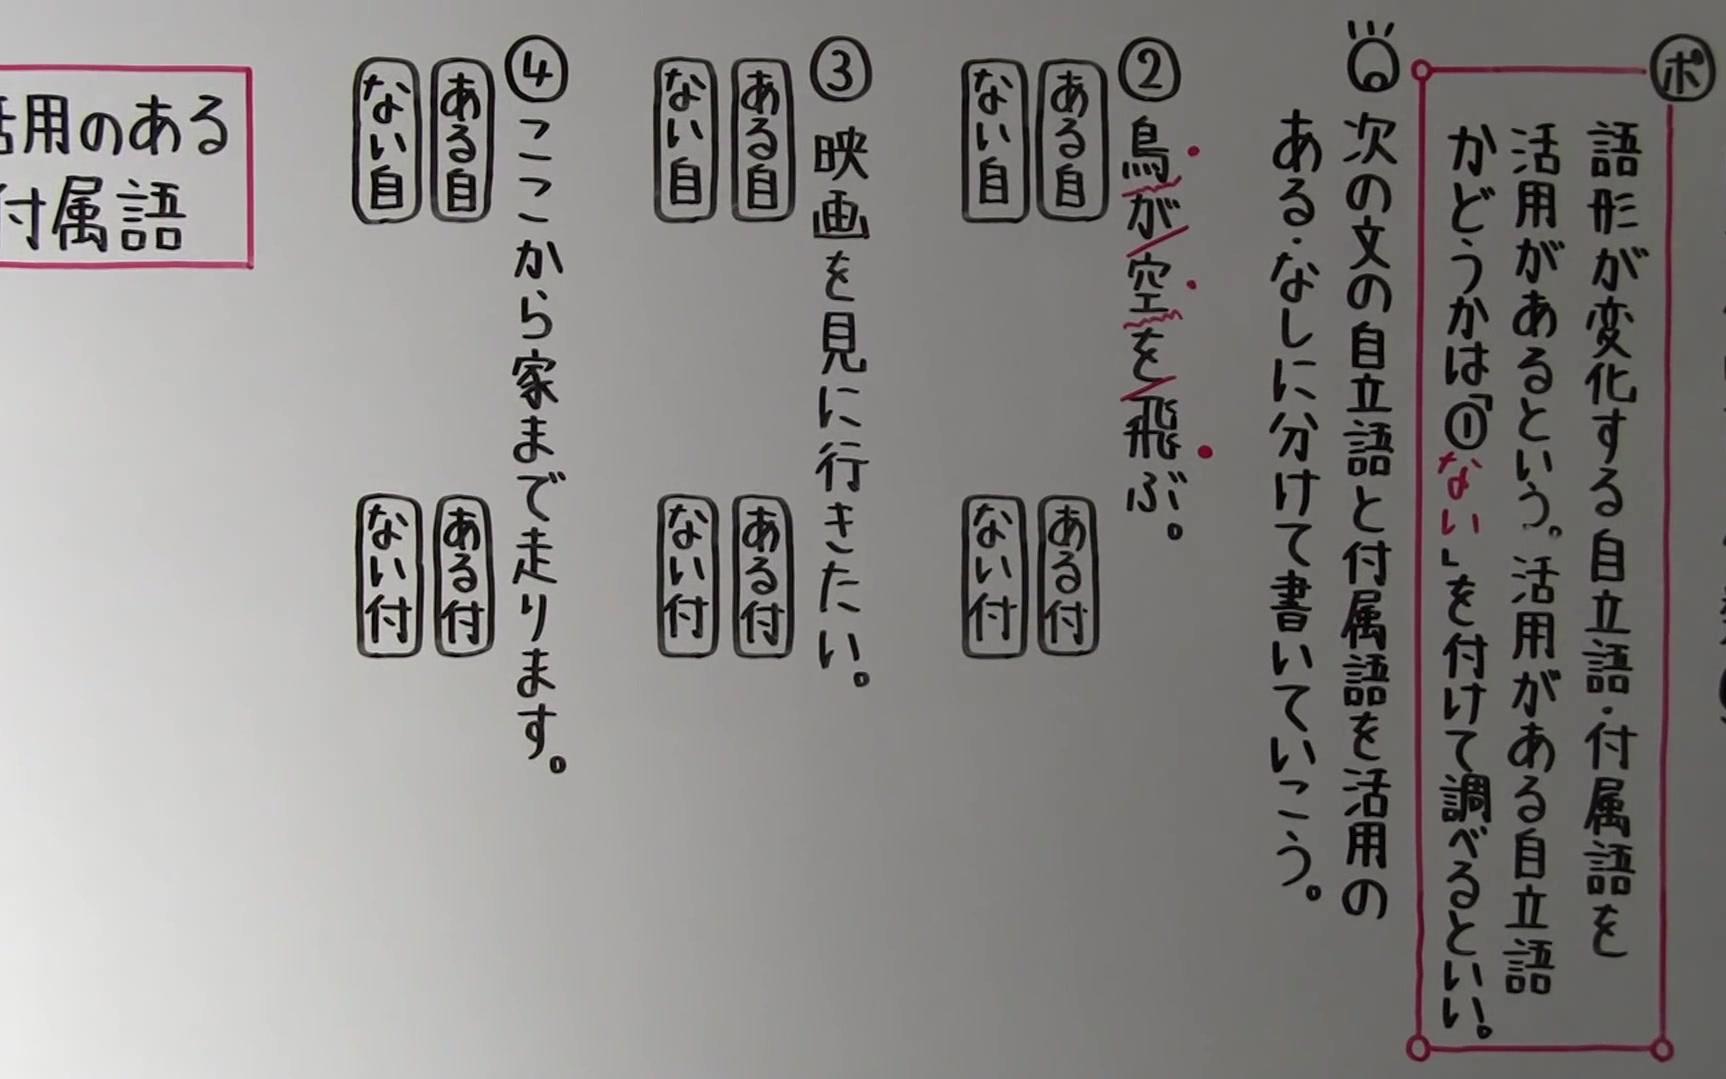 ポ
語形が変化する自立語・付属語を
活用があるという。活用がある自立語
かどうかは「①ない」を付けて調べるといい。
次の文の自立語と付属語を活用の
ある・なしに分けて書いていこう。
②鳥が空を飛ぶ。
ある自
ない自
ある付
ない付
③映画を見に行きたい。
ある自
ない自
ある付
ない付
④ここから家まで走ります。
ある自
ない自
ある付
ない付
活用のある
付属語